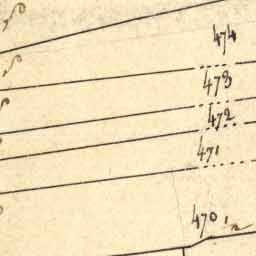 474
473
472
471
470